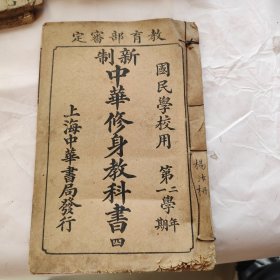 教育部審定
國民學校用
第二學年
第一學期
新制
中華修身教科書
四
上海中華書局發行